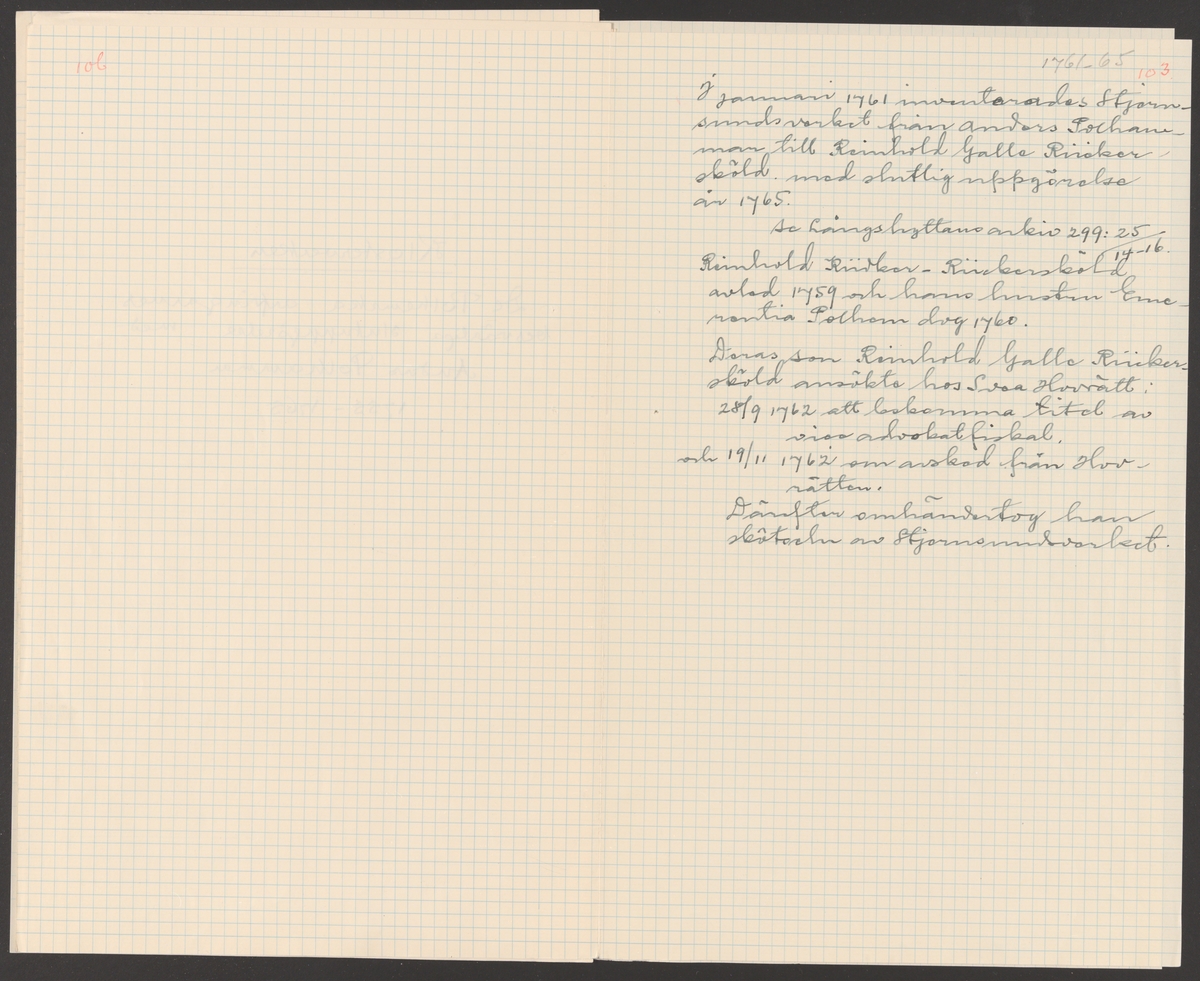 106
1761-65
103
I januari 1761 inventerades Stjern-
sundsverket från Anders Polham-
mar till Reinhold Galle Rücker-
sköld. med slutlig uppgörelse
år 1765.
Se Långshyttans arkiv 299: 25/14-16.
Reinhold Rücker - Rückersköld
avled 1759 och hans hustru Eme-
rentia Polhem dog 1760.
Deras son Reinhold Galle Rücker-
sköld ansökte hos Svea Hovrätt:
28/9 1762 att bekomma titel av
vice advokatfiskal.
och 19/11 1762 om avsked från Hov-
rätten.
Därefter omhändertog han
skötseln av Stjernsundsverket.